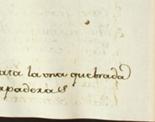 ata la una quebrada
apadoras